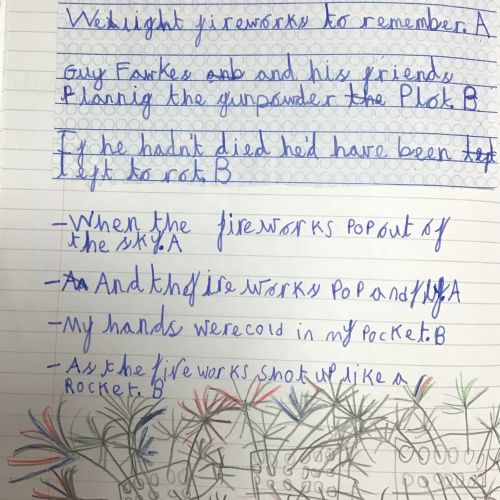 We light fireworks to remember. A
Guy Fawkes and his friends
Plannig the gunpowder the Plot. B
If he hadn't died he'd have been
left to rot. B
- When the fireworks pop out of
the sky. A
- And the fireworks pop and fly. A
- My hands were cold in my pocket. B
- As the fireworks shot up like a
Rocket. B